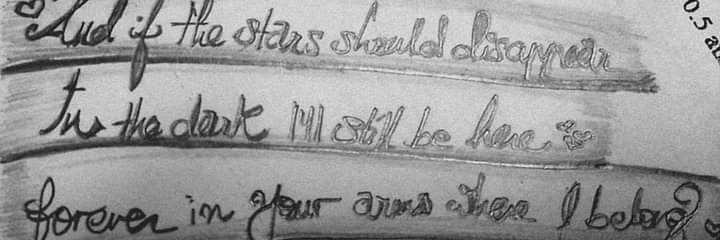 And if the stars should disappear
0.5 a
In the dark I'll still be here
forever in your arms where I belong